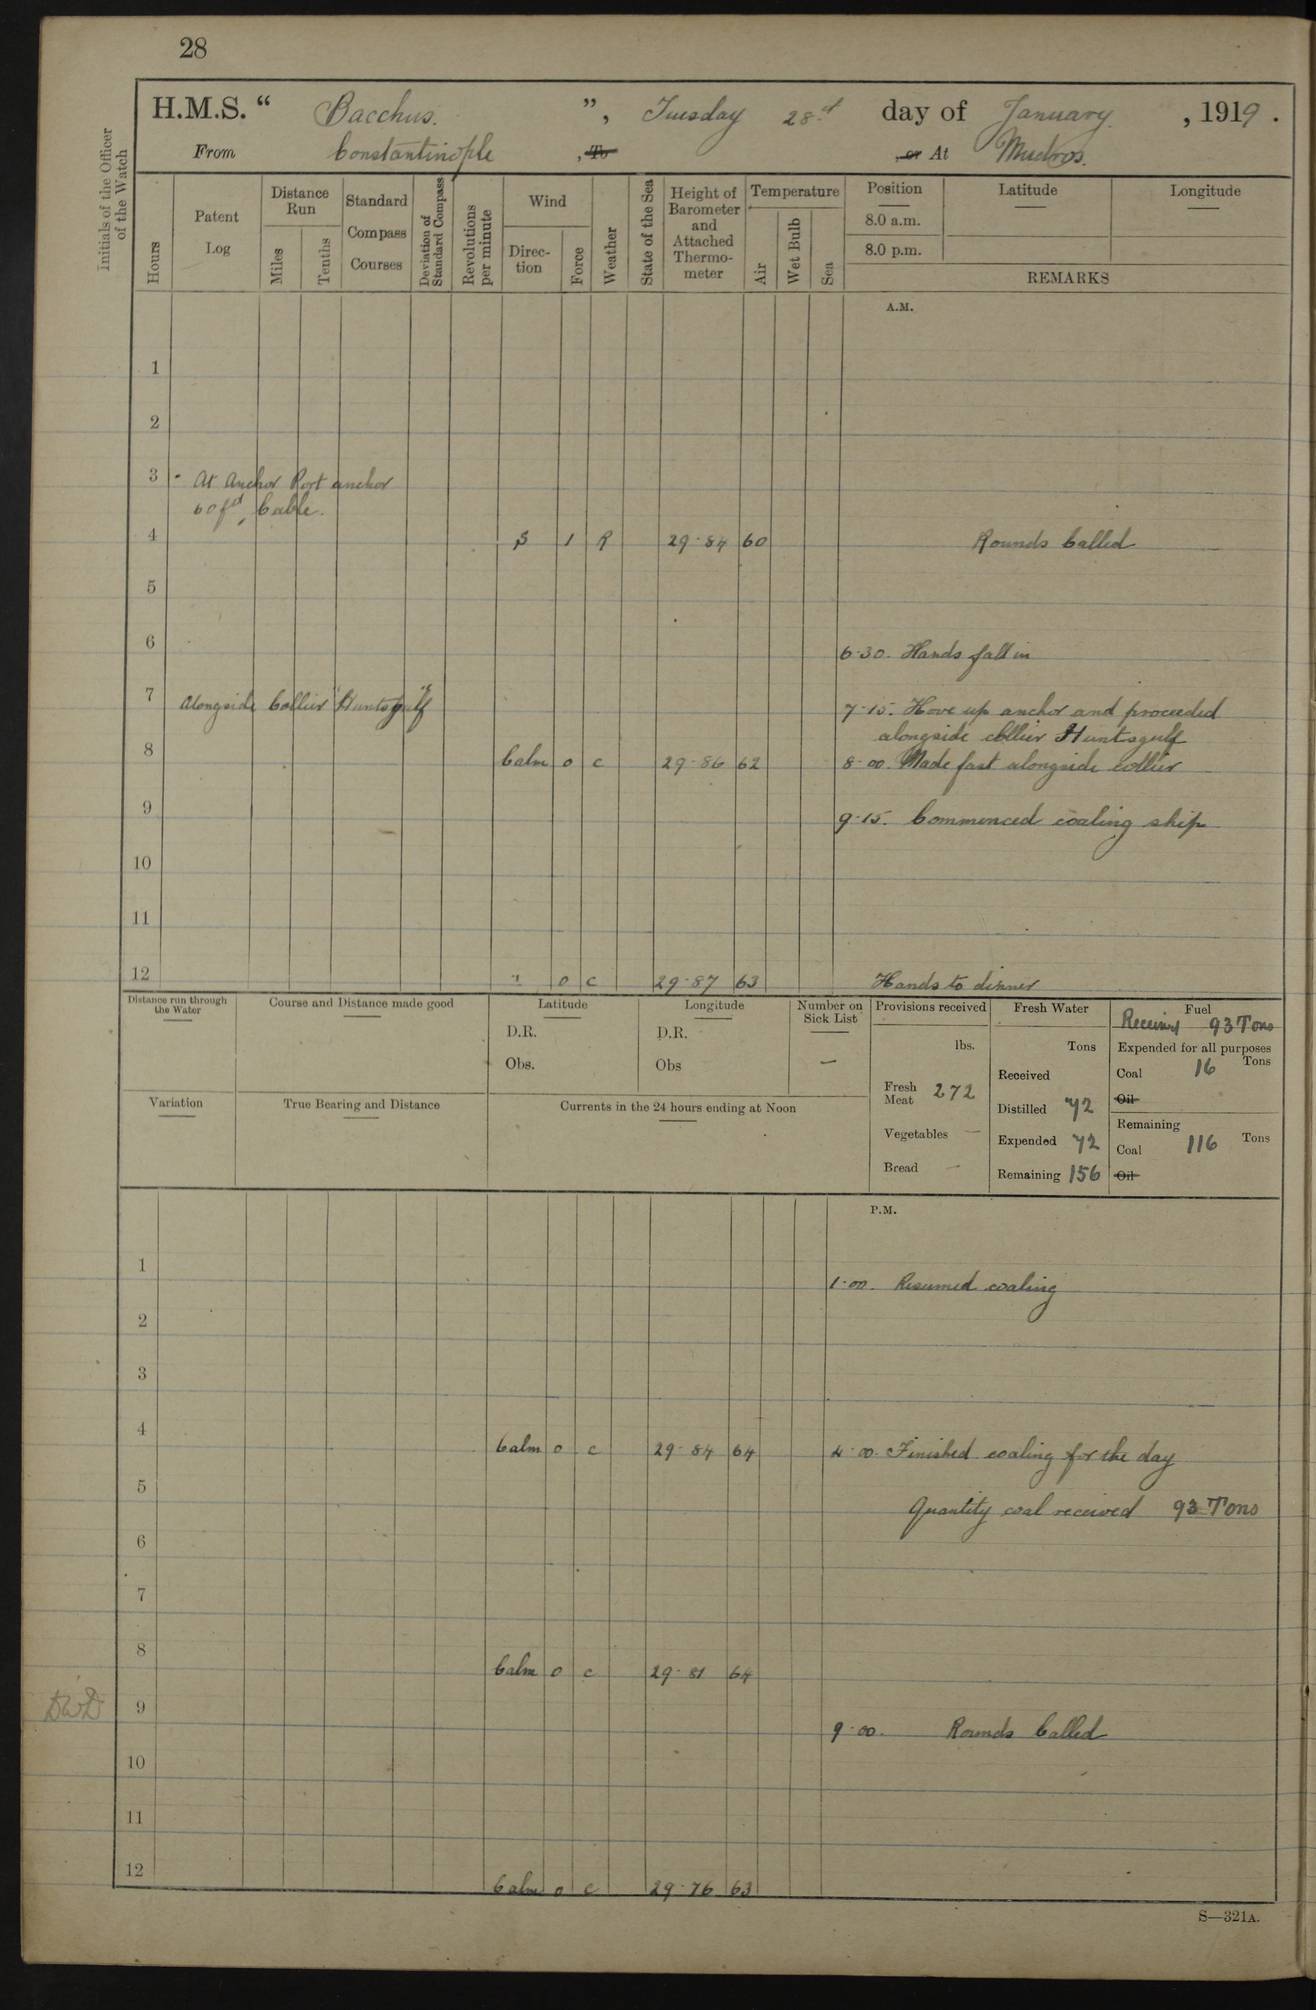 28
H.M.S. “ Bacchus. ”, Tuesday 28.d day of January , 1919.
From Constantinople , To , or At Mudros.
Initials of the Officer of the Watch
Hours
Patent Log
Distance Run
Miles
Tenths
Standard Compass Courses
Deviation of Standard Compass
Revolutions per minute
Wind
Direction
Force
Weather
State of the Sea
Height of Barometer and Attached Thermometer
Temperature
Air
Wet Bulb
Sea
Position
8.0 a.m.
8.0 p.m.
Latitude
Longitude
REMARKS
A.M.
1
2
3 At Anchor Port anchor
60 fd, Cable.
4 S 1 R 29·84 60 Rounds Called
5
6
6·30. Hands fall in
7 Alongside Collier "Huntsgulf" 7·15. Hove up anchor and proceeded
alongside collier Huntsgulf
8 Calm 0 c 29·86 62 8·00. Made fast alongside collier
9 9·15. Commenced coaling ship
10
11
12 " 0 c 29·87 63 Hands to dinner
Distance run through the Water
Course and Distance made good
Latitude
D.R.
Obs.
Longitude
D.R.
Obs
Number on Sick List
—
Variation
True Bearing and Distance
Currents in the 24 hours ending at Noon
Provisions received
lbs.
Fresh Meat 272
Vegetables —
Bread —
Fresh Water
Tons
Received
Distilled 42
Expended 42
Remaining 156
Fuel
Received 93 Tons
Expended for all purposes
Coal 16 Tons
Oil
Remaining
Coal 116 Tons
Oil
P.M.
1 1·00. Resumed coaling
2
3
4 Calm 0 c 29·84 64 4·00. Finished coaling for the day
5 Quantity coal received 93 Tons
6
7
8 Calm 0 c 29·81 64
DWD 9 9·00. Rounds Called
10
11
12 Calm 0 c 29·76 63
S—321A.